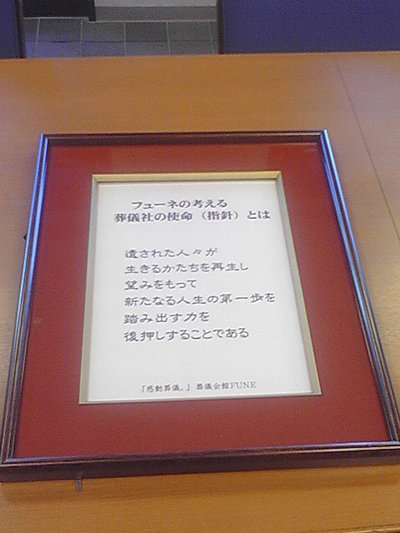 フューネの考える
葬儀社の使命（指針）とは
遺された人々が
生きるかたちを再生し
望みをもって
新たなる人生の第一歩を
踏み出す力を
後押しすることである
「感動葬儀。」葬儀会館FUNE